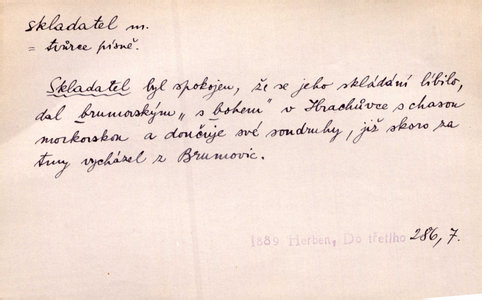 skladatel m.
= tvůrce písně.
Skladatel byl spokojen, že se jeho skládání líbilo,
dal brumovským „s bohem" v Hrachůvce s chasou
morkovskou a dončuje své soudruhy, již skoro za
tmy vycházel z Brumovic.
1889 Herben, Do třetího 286, 7.